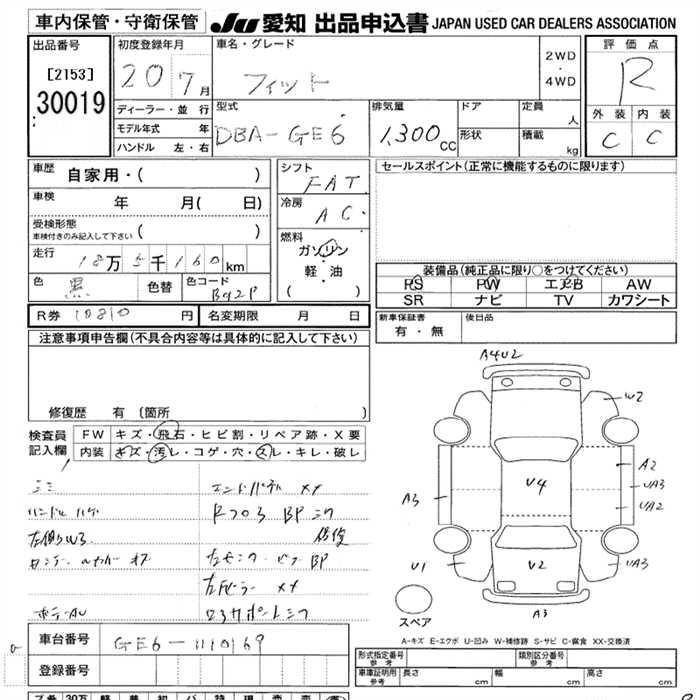 車内保管・守衛保管 JU愛知 出品申込書 JAPAN USED CAR DEALERS ASSOCIATION
出品番号
[2153]
30019
初度登録年月
20 7月
ディーラー・並 行
モデル年式 年
ハンドル 左・右
車名・グレード
フィット
2WD
・
4WD
評 価 点
R
外 装 内 装
C C
型式
DBA-GE6
排気量
1,300cc
ドア
形状
定員
人
積載
kg
車歴
自家用・( )
車検
年 月( 日)
受検形態
車検付きのみ記入して下さい ( )
走行
18万5千160km
色
黒
色替
色コード
B92P
シフト
FAT
冷房
AC
燃料
ガソリン
軽・油
( )
セールスポイント(正常に機能するものに限ります)
装備品(純正品に限り○をつけてください)
PS PW エアB AW
SR ナビ TV カワシート
R券 10810 円 名変期限 月 日
新車保証書
有・無
後日品
注意事項申告欄(不具合内容等は具体的に記入して下さい)
修復歴 有 (箇所 )
検査員
記入欄
FW キズ・飛石・ヒビ割・リペア跡・X要
内装 キズ・汚レ・コゲ・穴・スレ・キレ・破レ
エンドパネル XX
ハンドル ハゲ
BP
左側W3
BP
A4U2
W2
A2
UA3
UA2
A3
U4
U1
U2
UA3
A3
スペア
A-キズ E-エクボ U-凹み W-補修跡 S-サビ C-腐食 XX-交換済
車台番号
GE6-1110169
登録番号
形式指定番号
参 考
類別区分番号
参 考
車庫証明用
参 考
長さ cm 幅 cm 高さ cm